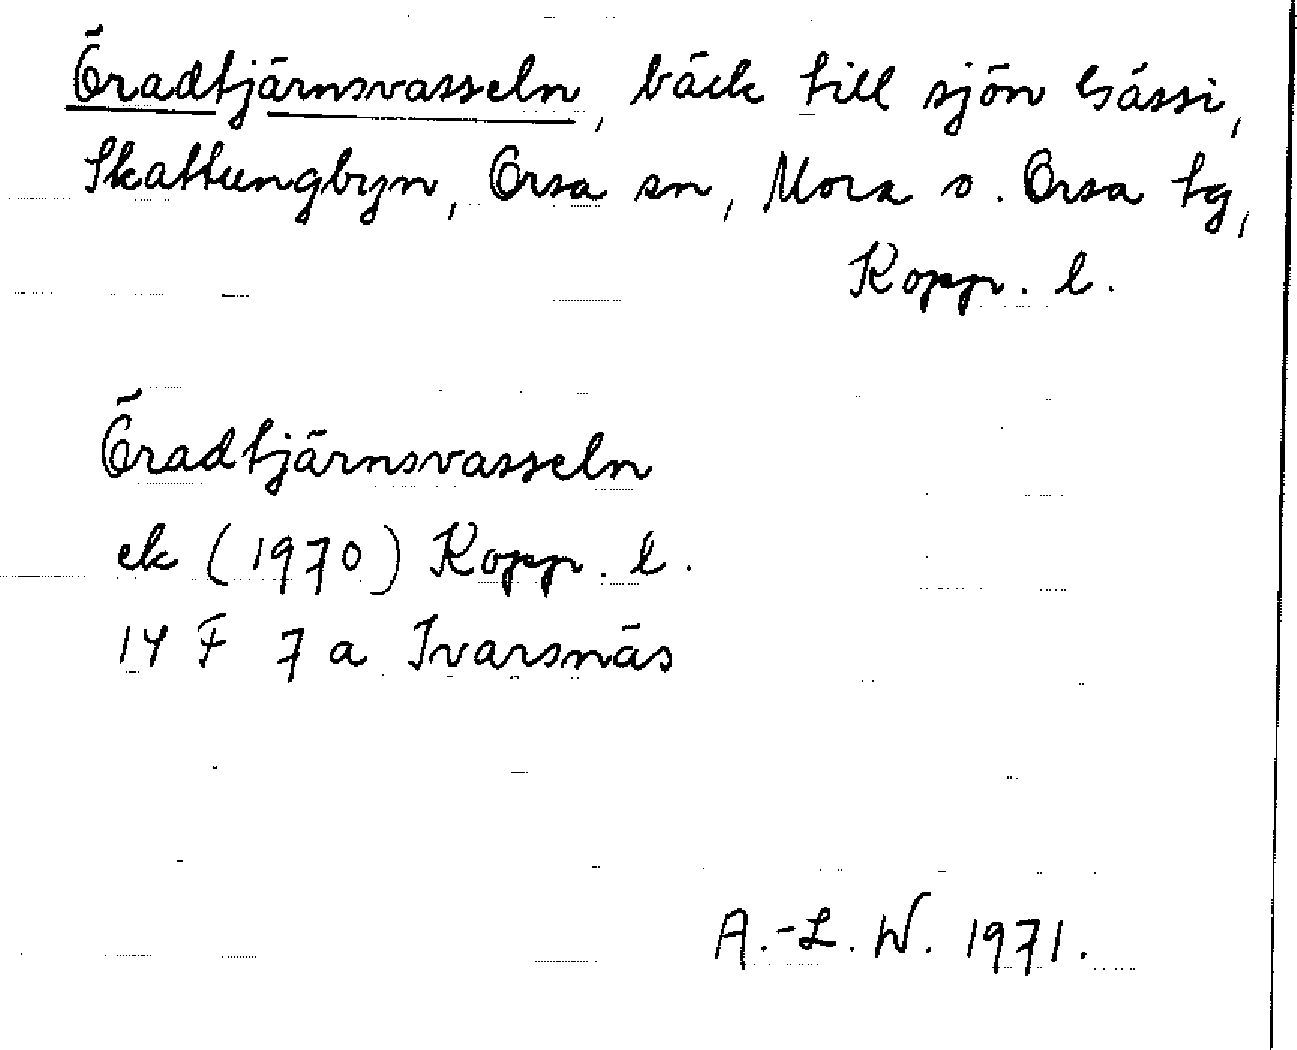 Öradtjärnsvasseln, bäck till sjön Gässi,
Skattungbyn, Orsa sn, Mora o. Orsa tg,
Kopp. l.
Öradtjärnsvasseln
ek (1970) Kopp. l.
14 F 7 a Ivarsnäs
A.-L. W. 1971.